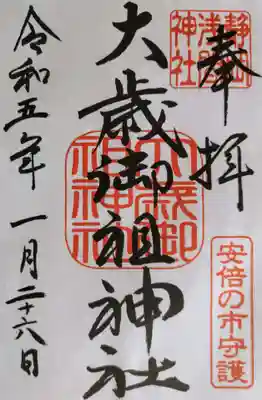 奉拝
静岡浅間神社
大歳御祖神社
大歳御祖神社
安倍の市守護
令和五年一月二十六日